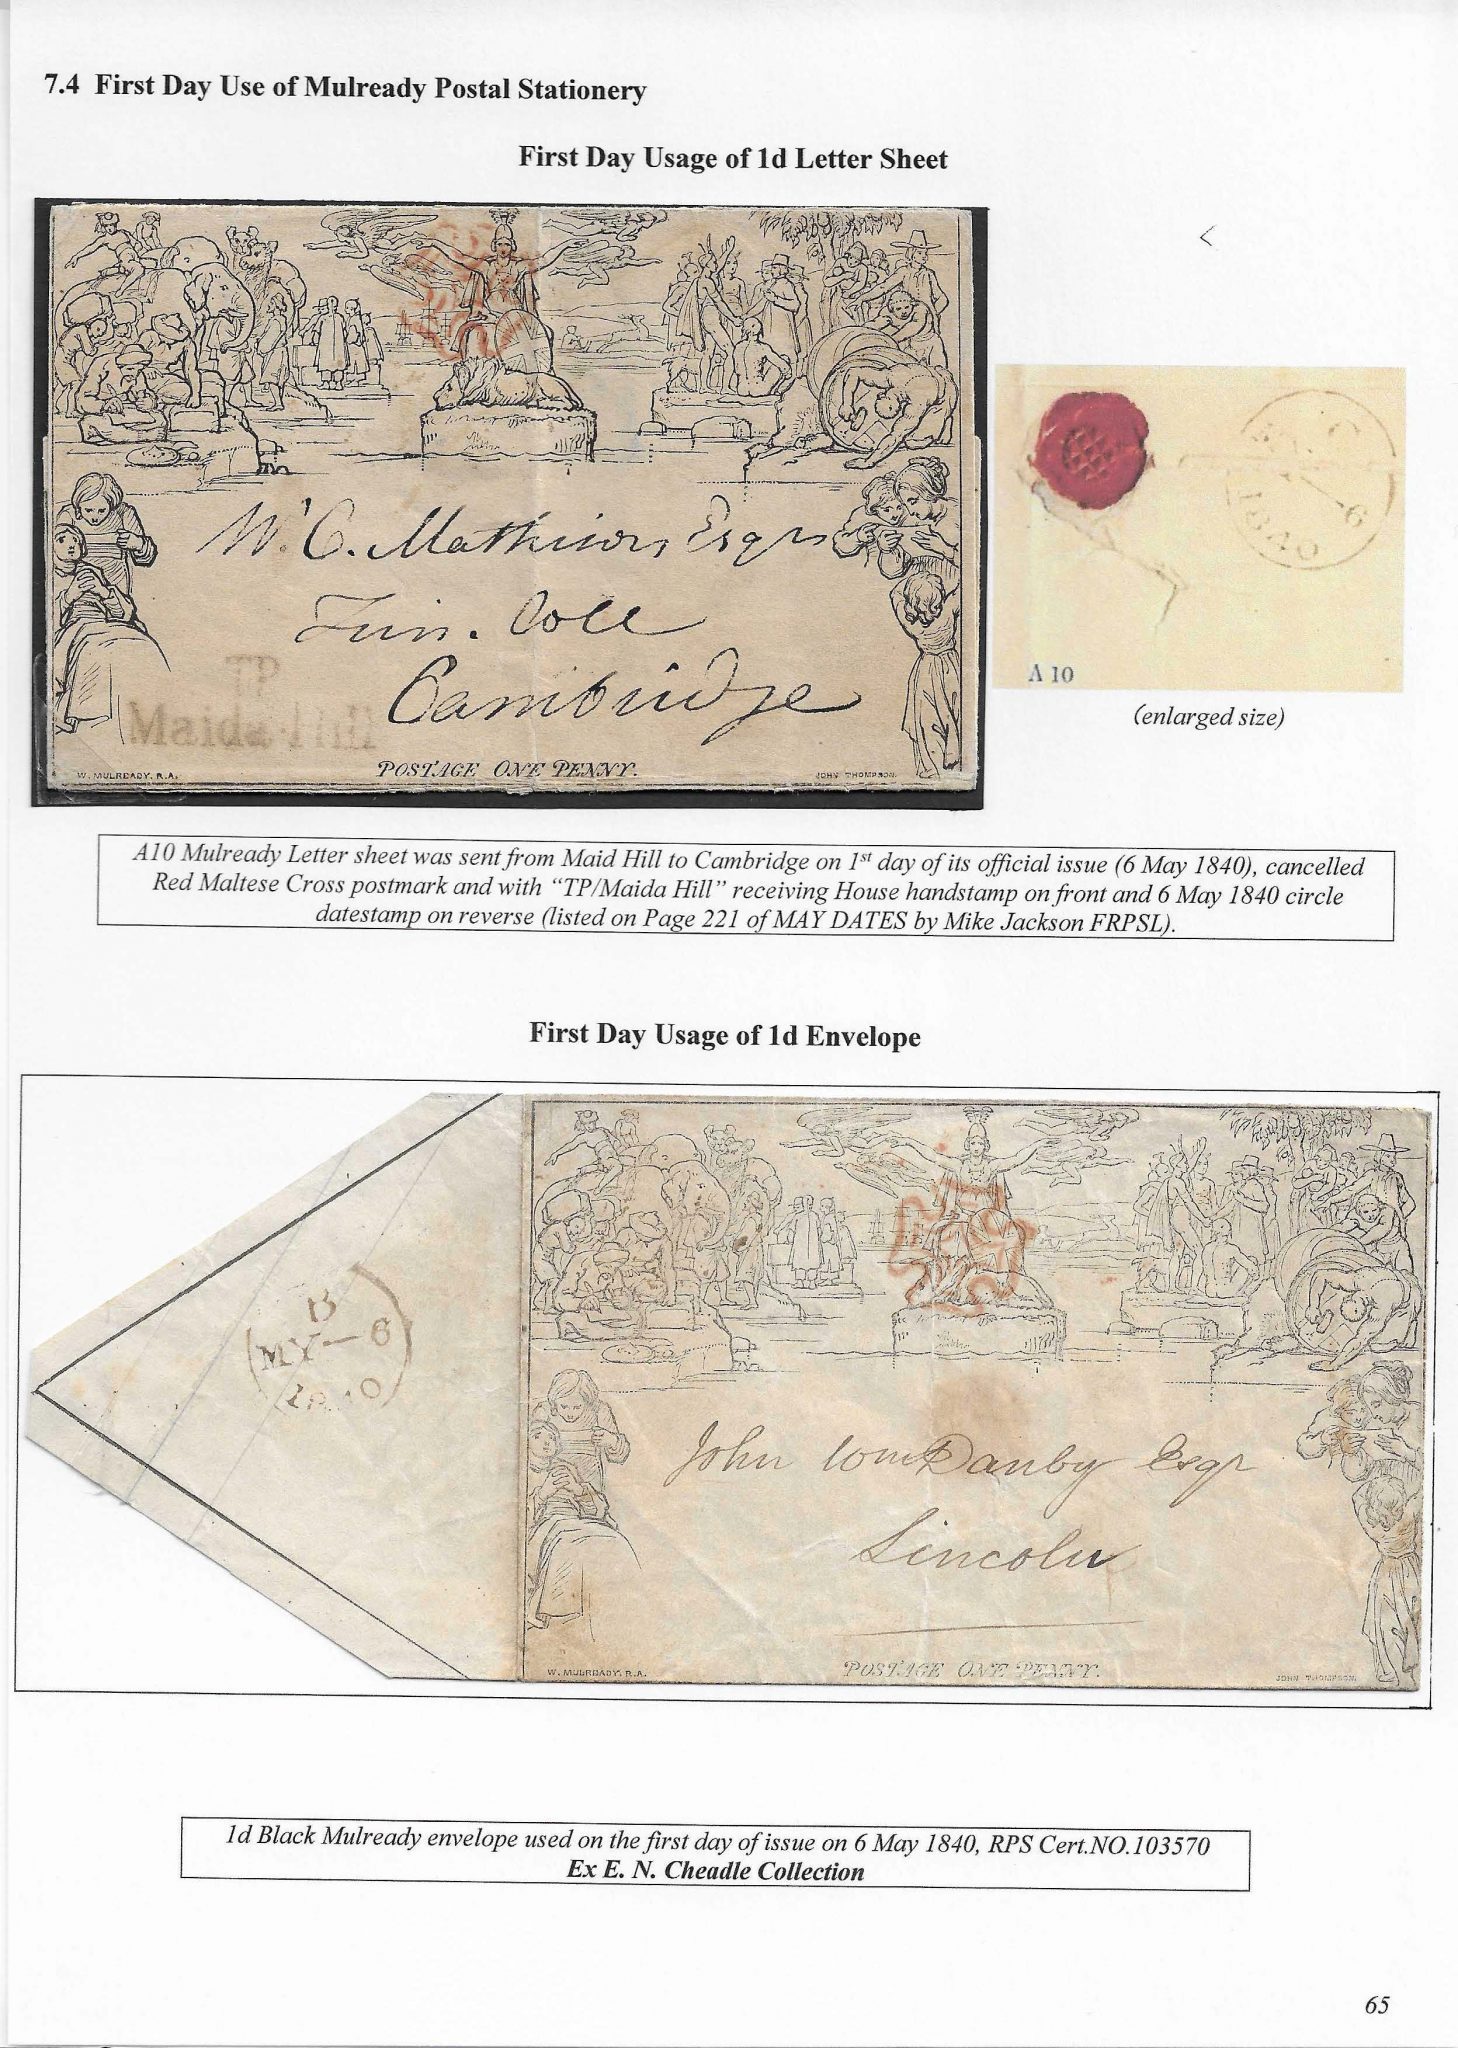 7.4 First Day Use of Mulready Postal Stationery
First Day Usage of 1d Letter Sheet
W. C. Mathison Esqre
Trin. Coll
Cambridge
TP
Maida Hill
W. MULREADY. R.A.
POSTAGE ONE PENNY.
JOHN THOMPSON.
C
6
1840
A 10
(enlarged size)
A10 Mulready Letter sheet was sent from Maid Hill to Cambridge on 1st day of its official issue (6 May 1840), cancelled
Red Maltese Cross postmark and with “TP/Maida Hill” receiving House handstamp on front and 6 May 1840 circle
datestamp on reverse (listed on Page 221 of MAY DATES by Mike Jackson FRPSL).
First Day Usage of 1d Envelope
B
MY–6
1840
John Wm Danby Esqr
Lincoln
W. MULREADY. R.A.
POSTAGE ONE PENNY.
JOHN THOMPSON.
1d Black Mulready envelope used on the first day of issue on 6 May 1840, RPS Cert.NO.103570
Ex E. N. Cheadle Collection
65